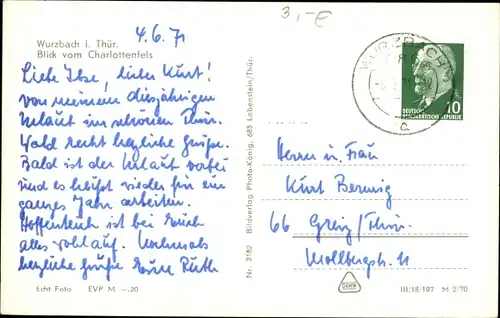 3,-€
4.6.71
Wurzbach i. Thür.
Blick vom Charlottenfels
Liebe Ilse, lieber Kurt!
Von meinem diesjährigen
Urlaub im schönen Thür.
Wald recht herzliche Grüße.
Bald ist der Urlaub vorbei
und es heißt wieder für ein
ganzes Jahr arbeiten.
Hoffentlich ist bei Euch
alles wohlauf. Nochmals
herzliche Grüße Eure Ruth
Echt Foto EVP M –.20
Nr. 3182 Bildverlag Photo-König, 685 Lobenstein/Thür.
WURZBACH
a
DEUTSCHE
DEMOKRATISCHE REPUBLIK
10
Herrn u. Frau
Kurt
66 Greiz/Thür.
Mollbergstr. 11
III/18/197 M 2/70